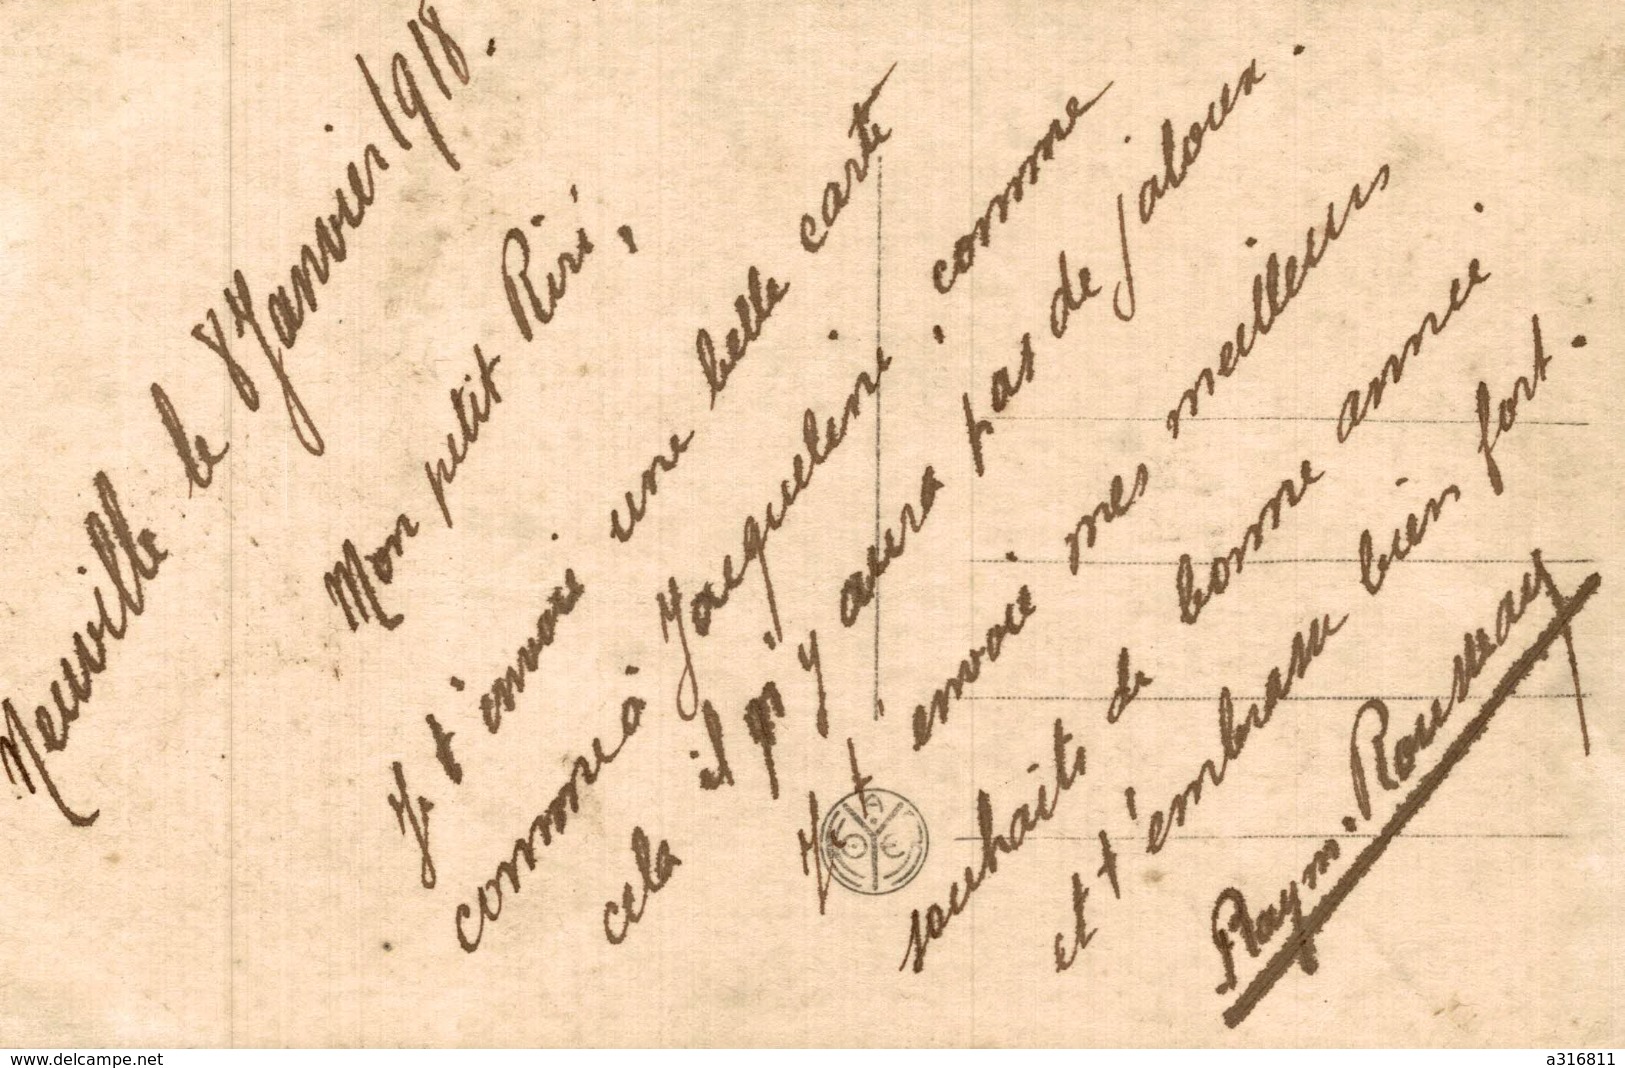 Neuville le 8 Janvier 1918.
Mon petit Riri,
Je t'envoie une belle carte
comme à Jacqueline, comme
cela il n'y aura pas de jaloux.
Je t'envoie mes meilleurs
souhaits de bonne année
et t'embrasse bien fort.
Raym. Rousseau
www.delcampe.net
a316811